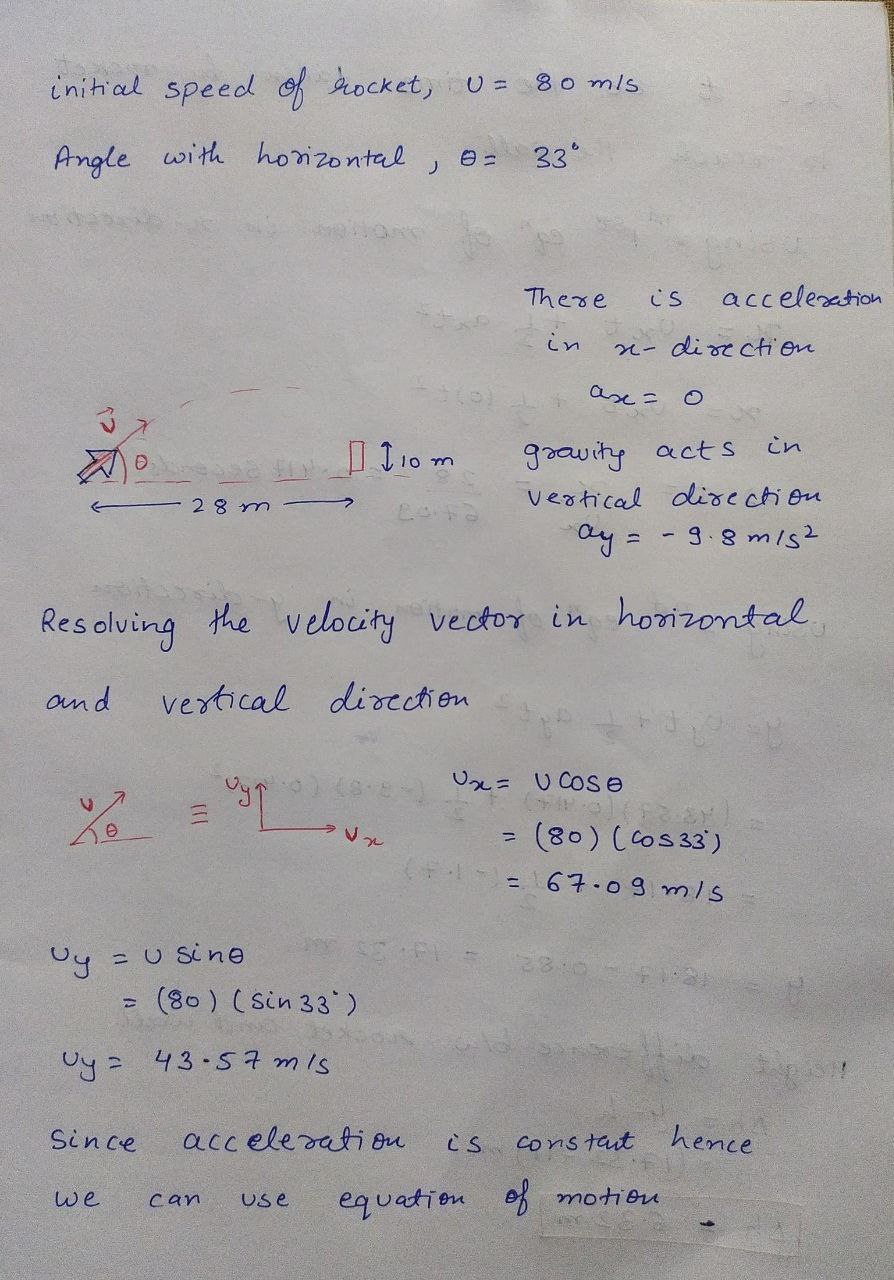 initial speed of rocket, U = 80 m/s
Angle with horizontal, θ = 33°
There is acceleration
in x-direction
ax = 0
gravity acts in
vertical direction
ay = - 9.8 m/s²
U
θ
10 m
28 m
Resolving the velocity vector in horizontal
and vertical direction
U θ ≡ Uy Ux
Ux = U cosθ
= (80) (cos33°)
= 67.09 m/s
Uy = U sinθ
= (80) (sin33°)
Uy = 43.57 m/s
Since acceleration is constant hence
we can use equation of motion